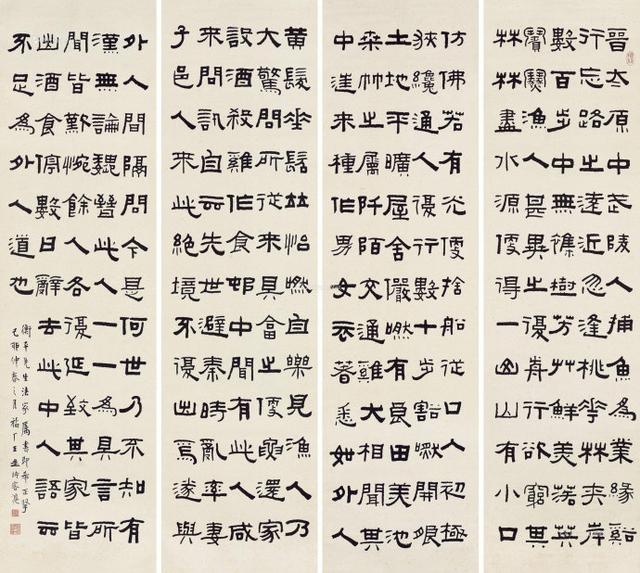 晉太原中武陵人捕魚為業緣谿
行忘路之遠近忽逢桃華林夾岸
數百步中無雜樹芳艸鮮美落英
繽紛漁人甚異之復前行欲窮其
林林盡水源便得一山山有小口
仿佛若有光便捨船從口入初極
狹纔通人復行數十步豁然開朗
土地平曠屋舍儼然有良田美池
桑竹之屬阡陌交通雞犬相聞其
中往來種作男女衣著悉如外人
黃髮垂髫並怡然自樂見漁人乃
大驚問所從來具答之便要還家
設酒殺雞作食邨中聞有此人咸
來問訊自云先世避秦時亂率妻
子邑人來此絕境不復出焉遂與
外人間隔問今是何世乃不知有
漢無論魏晉此人一一為具言所
聞皆歎惋餘人各復延致其家皆
出酒食停數日辭去此中人語云
不足為外人道也
衡平先生法家屬書即希正掔
己卯仲春之月福厂王禔時客滬